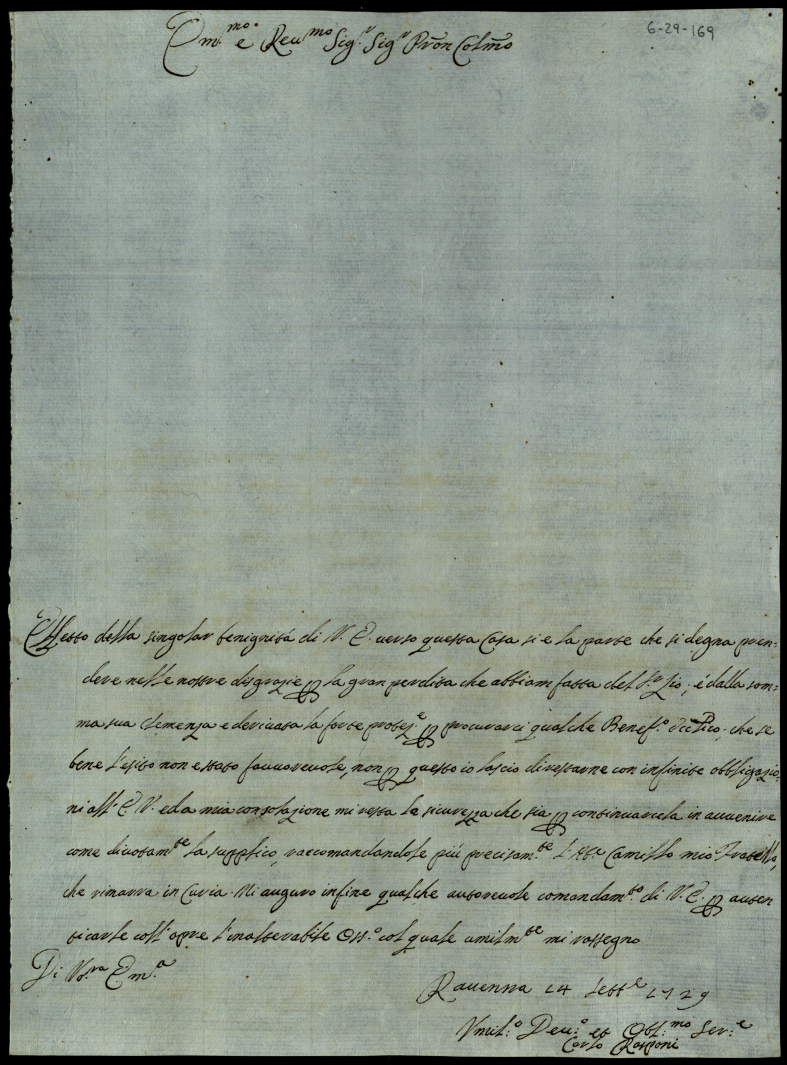 6-29-169
Em.mo e Reu.mo Sig.r Sig.r Pron Colmo
Effetto della singolar benignitá di V. E. verso questa Casa si é la parte che si degna pren-
dere nelle nostre disgrazie per la gran perdita che abbiam fatta del Sr. Zio; é dalla som-
ma sua Clemenza e derivata la forte protez.e per procurarci qualche Benef.o che se
bene l'esito non é stato favorevole, non per questo io lascio di restarne con infinite obbligazio-
ni all' E. V. ed a mia consolazione mi resta la sicurezza che sia per continuarcela in avvenire
come divotam.te la supplico, raccomandandole piú precisam.te l'Ab.e Camillo mio Fratello,
che rimarra in Curia. Mi auguro infine qualche autorevole comandam.to di V. E. per auten
ticarle coll' opre l'inalterabile Oss.o col quale umilm.te mi rassegno
Di V.ra Em.a
Ravenna 14 Sett.e 1729
Vmil.o Deu.o et Obl.mo Ser.e
Carlo Rasponi